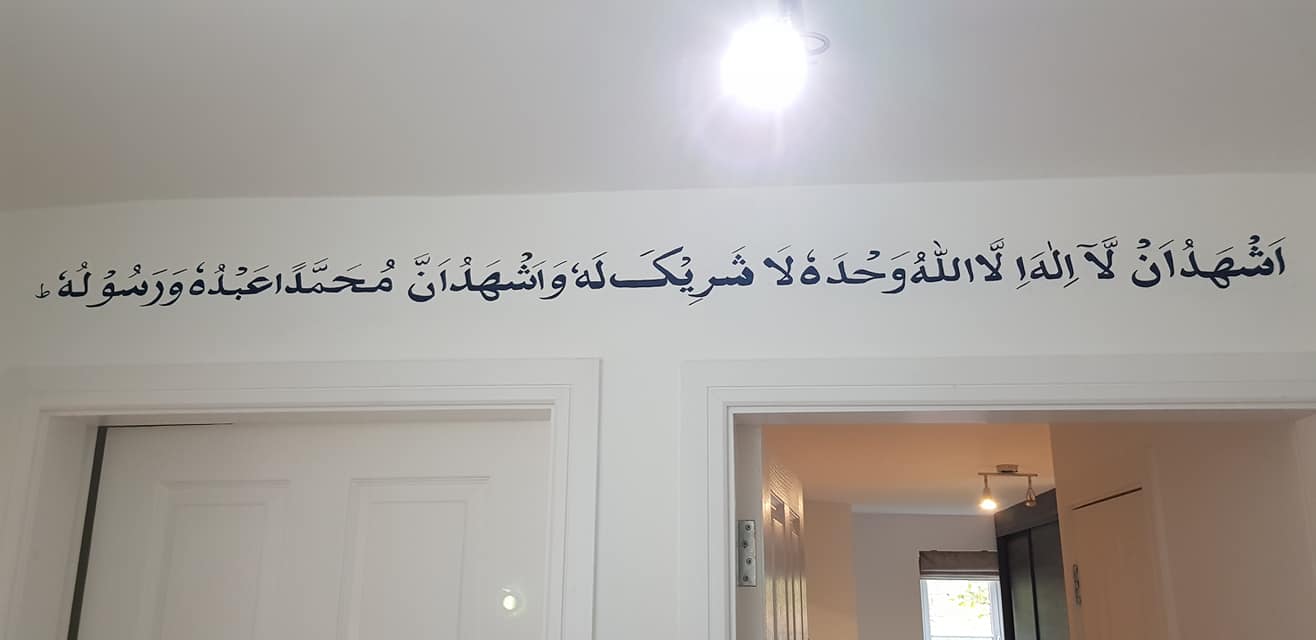 اَشْهَدُ اَنْ لَّآ اِلٰهَ اِلَّا اللّٰهُ وَحْدَهٗ لَا شَرِيْكَ لَهٗ وَاَشْهَدُ اَنَّ مُحَمَّدًا عَبْدُهٗ وَرَسُوْلُهٗ ؕ